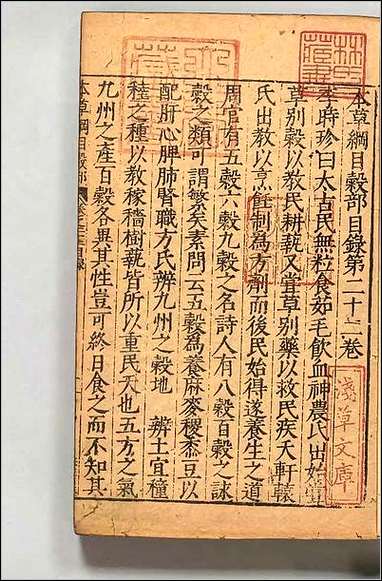 本草綱目穀部目錄第二十二卷
李時珍曰太古民無粒食茹毛飲血神農氏出始嘗
草別穀以教民耕蓺又嘗草別藥以救民疾夭軒轅
氏出教以烹飪制為方劑而後民始得遂養生之道
周官有五穀六穀九穀之名詩人有八穀百穀之詠
穀之類可謂繁矣素問云五穀為養麻麥稷黍豆以
配肝心脾肺腎職方氏辨九州之穀地 辨土宜穜
稑之種以教稼穡樹蓺皆所以重民天也五方之氣
九州之產百穀各異其性豈可終日食之而不知其
本草綱目穀部
淺草文庫